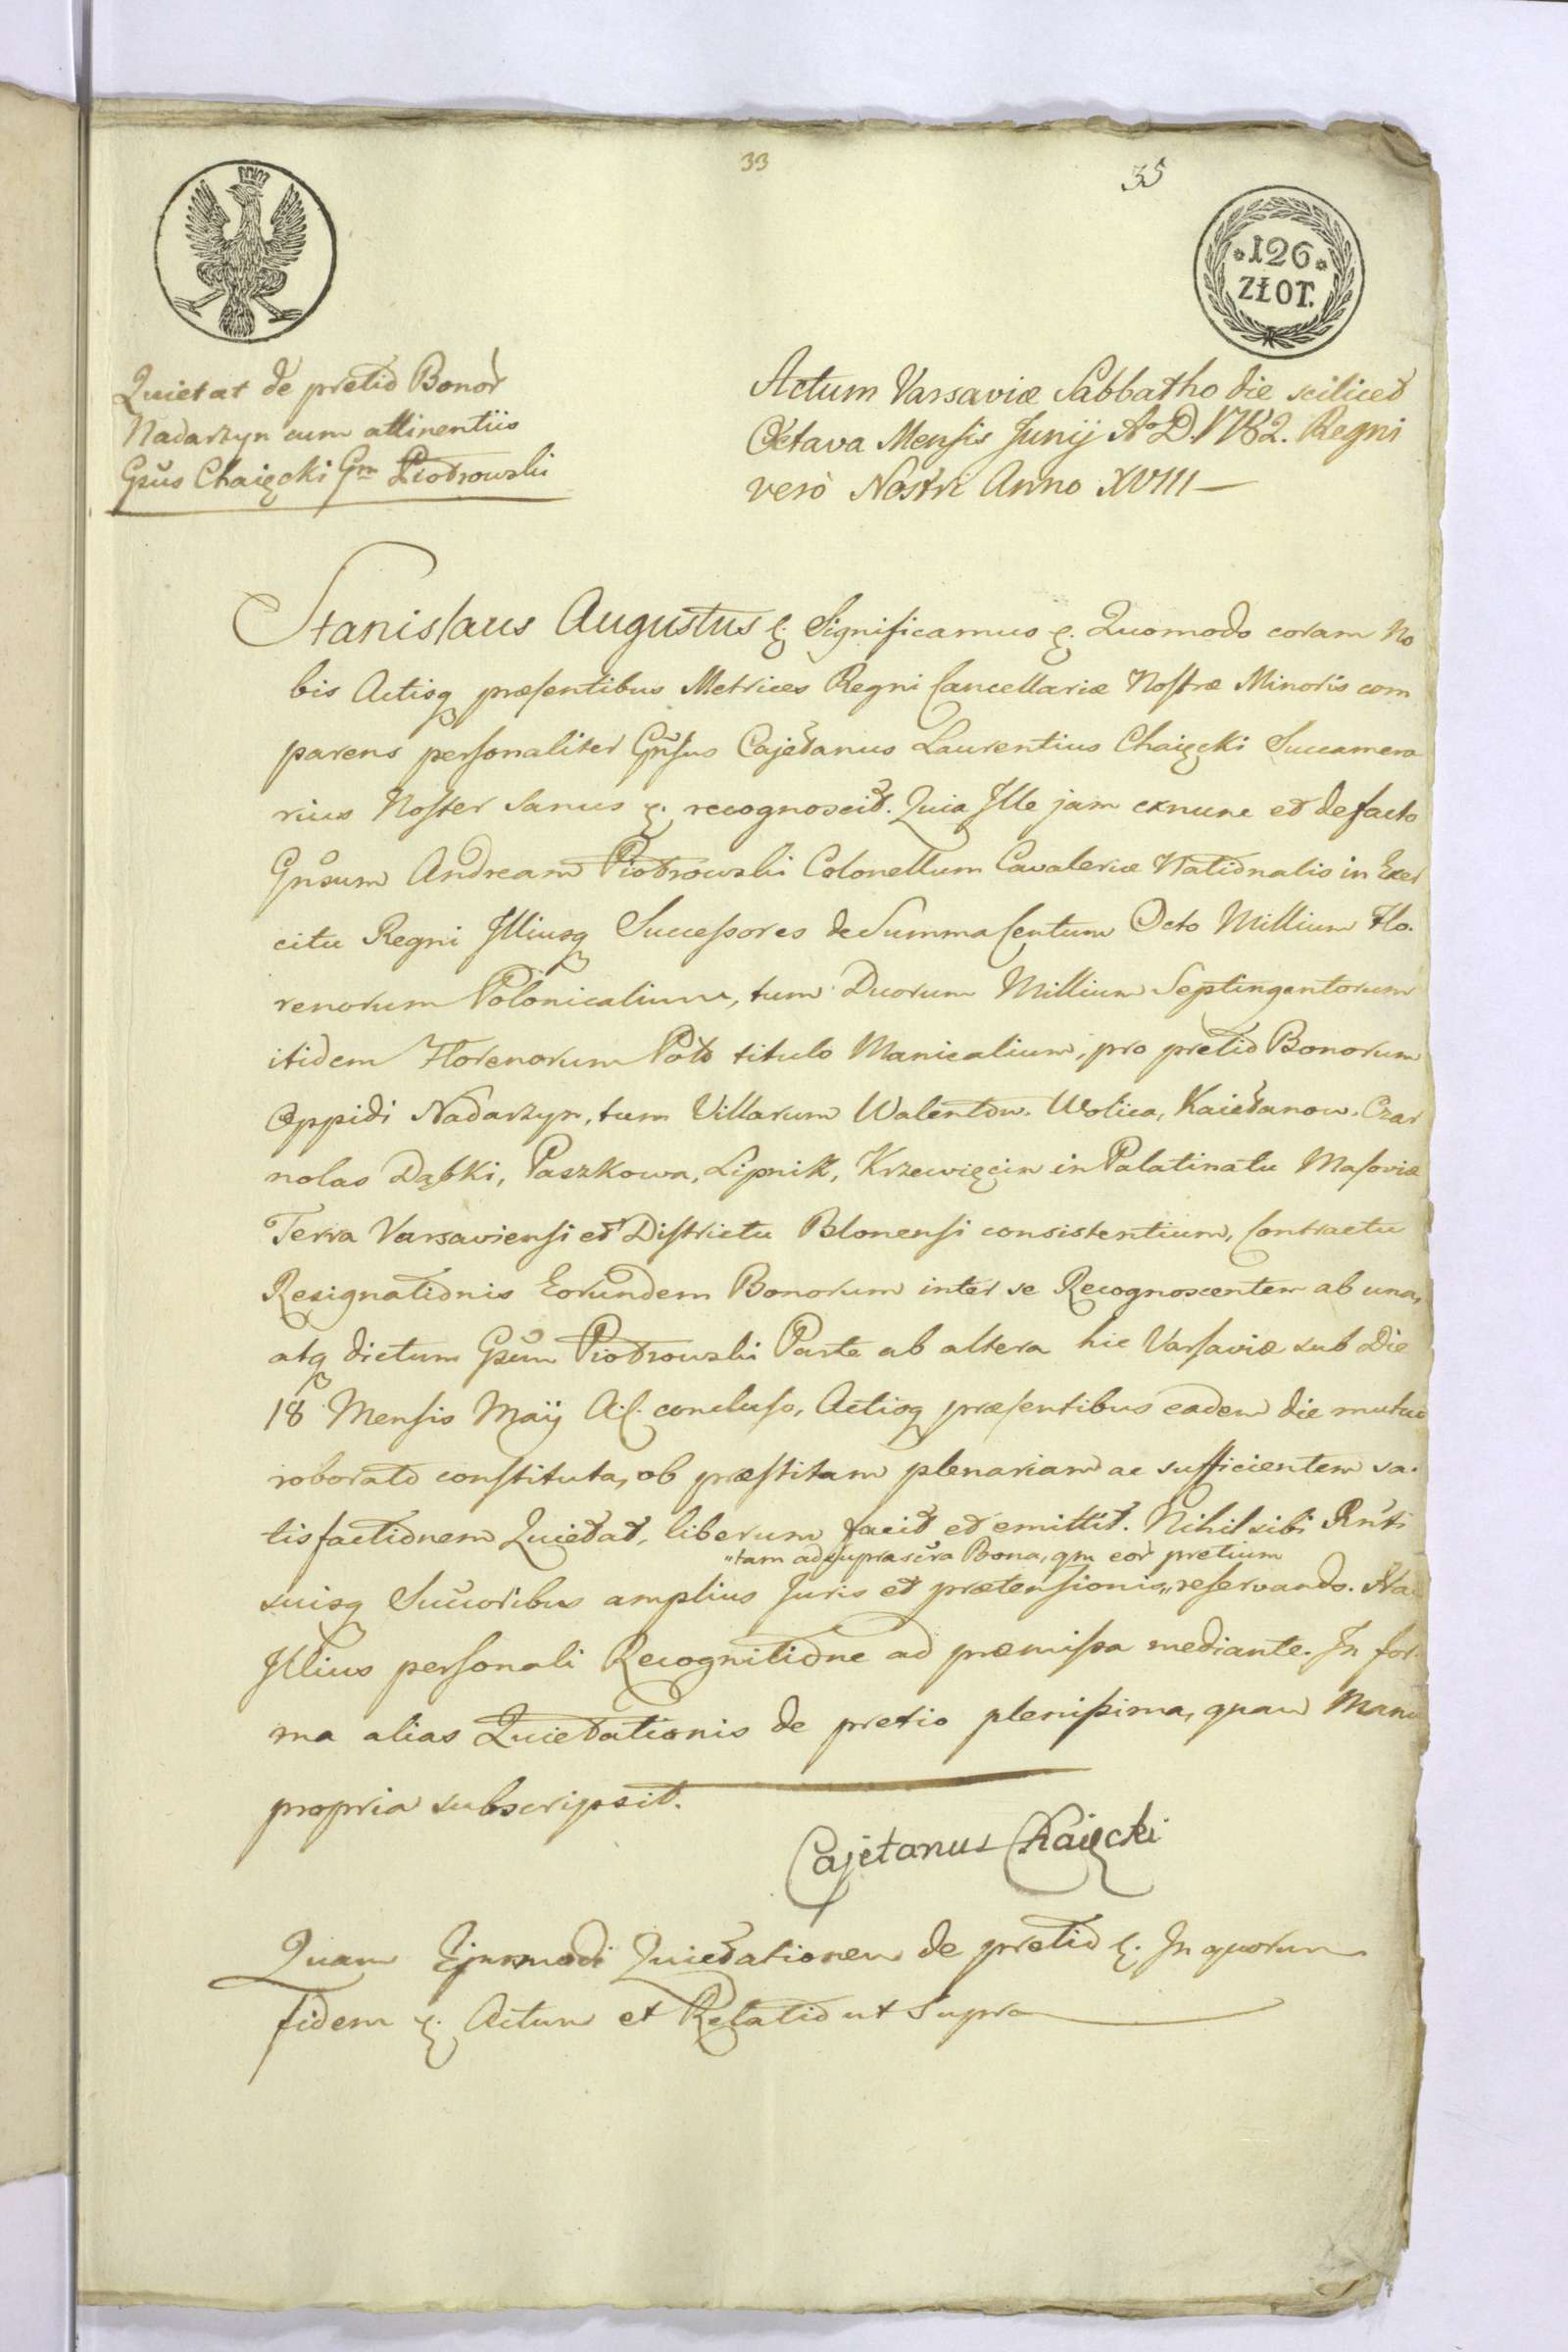 33
35
*126*
ZŁOT.
Quietat de pretio Bonor
Nadarzyn cum attinentiis
Gsus Chaięcki Gm Piotrowski
Actum Varsaviæ Sabbatho die scilicet
Octava Mensis Junij Ao D. 1782. Regni
verò Nostri Anno XVIII —
Stanislaus Augustus &. Significamus &. Quomodo coram No
bis Actisq præsentibus Metrices Regni Cancellariæ Nostræ Minoris com
parens personaliter Gnsus Cajetanus Laurentius Chaięcki Succamera
rius Noster Sanus &. recognoscit. Quia Ille jam exnunc et defacto
Gnsum Andream Piotrowski Colonellum Cavaleriæ Nationalis in Exer
citu Regni Illiusq Successores de Summa Centum Octo Millium Flo.
renorum Polonicalium, tum Duorum Millium Septingentorum
itidem Florenorum Polo titulo Manicalium, pro pretio Bonorum
Oppidi Nadarzyn, tum Villarum Walentow. Wolica, Kaietanow. Czar
nolas Dąbki, Paszkowa, Lipnik, Krzewięcin in Palatinatu Masoviæ
Terra Varsaviensi et Districtu Blonensi consistentium, Contractu
Resignationis Eorundem Bonorum inter se Recognoscentem ab una,
atq dictum Gsum Piotrowski Parte ab altera hic Varsaviæ sub Die
18 Mensis Maij A.C. concluso, Actisq præsentibus eadem die mutuo
roborato constituta, ob præstitam plenariam ac sufficientem sa.
tisfactionem Quietat, liberum facit et emittit. Nihil sibi Rnti
"tam ad suprascra Bona, qm eor pretium
suisq Succoribus amplius Juris et prætensionis "reservando.
Illius personali Recognitione ad præmissa mediante. In for.
ma alias Quietationis de pretio plenissima, quam Manu
propria subscripsit.
Cajetanus Chaięcki
Quam Ejusmodi Quietationem de pretio &. In quorum
fidem &. Actum et Relatio ut Supra